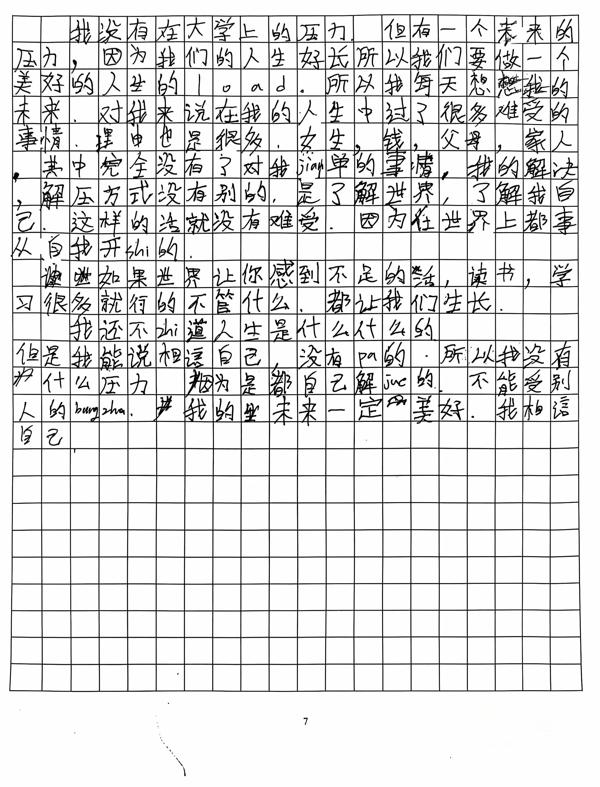 我没有在大学上的压力. 但有一个未来的
压力, 因为我们的人生好长所以我们要做一个
美好的人生的load. 所以我每天想想我的
未来. 对我来说在我的人生中过了很多难受的
事情. 理由也是很多. 女生, 钱, 父母, 家人
, 其中完全没有了对我jian单的事情, 我的解决
, 解压方式没有别的. 是了解世界, 了解我自
己. 这样的话就没有难受. 因为在世界上都事
从自我开shi的.
如果世界让你感到不足的话, 读书, 学
习很多就行的不管什么. 都让我们生长.
我还不zhi道人生是什么什么的
但是我能说相信自己, 没有pa的. 所以我没有
什么压力 因为是都自己解jue的. 不能受别
人的bangzhu. 我的未来一定美好. 我相信
自己
7